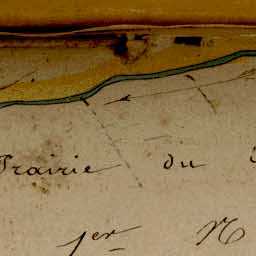 Prairie du
1er N